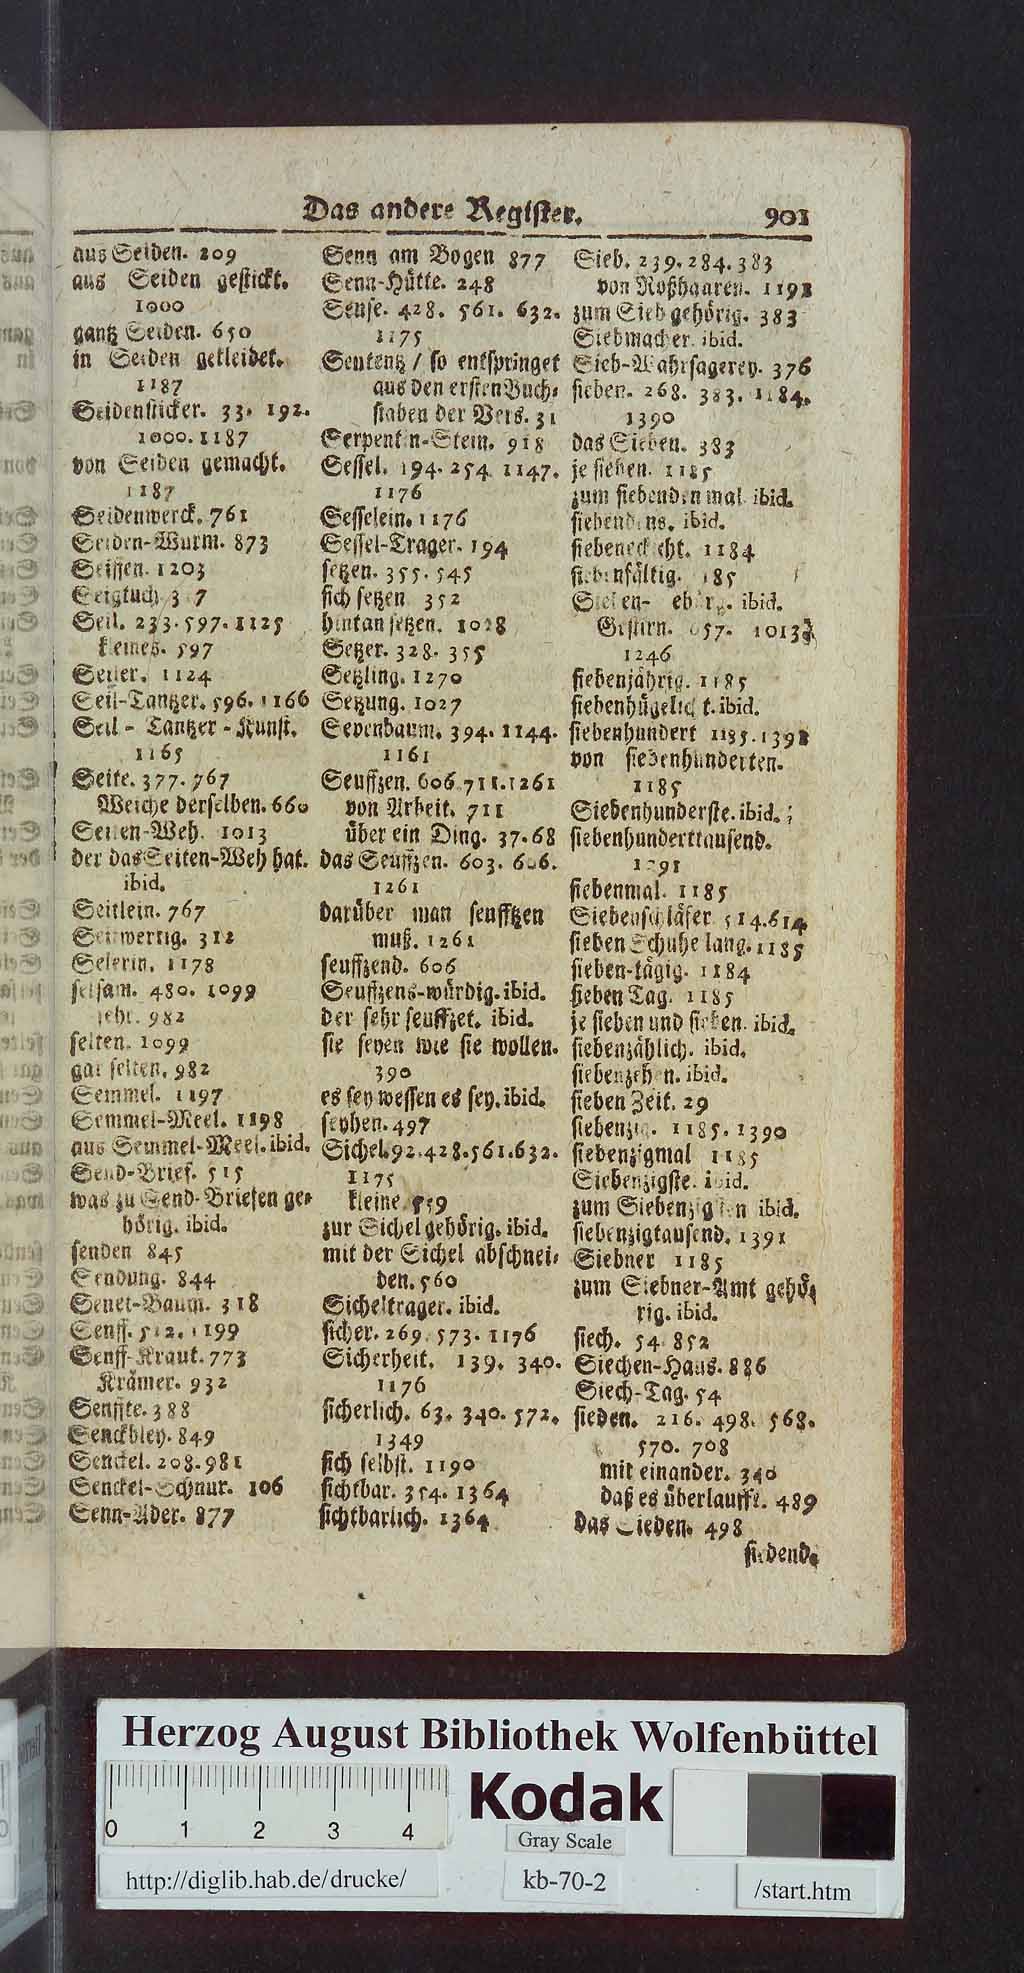 Das andere Register. 901
aus Seiden. 209
aus Seiden gestickt.
1000
gantz Seiden. 650
in Seiden gekleidet.
1187
Seidensticker. 33. 192.
1000. 1187
von Seiden gemacht.
1187
Seidenwerck. 761
Seiden-Wurm. 873
Seiffen. 1203
Seigtuch
Seil. 233. 597. 1125
kleines. 597
Seiler. 1124
Seil-Tantzer. 596. 1166
Seil-Tantzer-Kunst.
1165
Seite. 377. 767
Weiche derselben. 660
Seiten-Weh. 1013
der das Seiten-Weh hat.
ibid.
Seitlein. 767
Seitwertig. 312
Selerin. 1178
selsam. 480. 1099
sehr. 982
selten. 1099
gar selten. 982
Semmel. 1197
Semmel-Meel. 1198
aus Semmel-Meel. ibid.
Send-Brief. 515
was zu Send-Briefen ge-
hörig. ibid.
senden 845
Sendung. 844
Senet-Baum. 318
Senff. 512. 1199
Senff-Kraut. 773
Krämer. 932
Senffte. 388
Senckbley. 849
Senckel. 208. 981
Senckel-Schnur. 106
Senn-Ader. 877
Senn am Bogen 877
Senn-Hütte. 248
Sense. 428. 561. 632.
1175
Sententz / so entspringet
aus den ersten Buch-
staben der Vers. 31
Serpentin-Stein. 918
Sessel. 194. 254. 1147.
1176
Sesselein. 1176
Sessel-Trager. 194
setzen. 355. 545
sich setzen 352
hintan setzen. 1028
Setzer. 328. 355
Setzling. 1270
Setzung. 1027
Sevenbaum. 394. 1144.
1161
Seuffzen. 606. 711. 1261
von Arbeit. 711
über ein Ding. 37. 68
das Seuffzen. 603. 606.
1261
darüber man seufftzen
muß. 1261
seuffzend. 606
Seuffzens-würdig. ibid.
der sehr seuffzet. ibid.
sie seyen wie sie wollen.
390
es sey wessen es sey. ibid.
seyhen. 497
Sichel. 92. 428. 561. 632.
1175
kleine. 559
zur Sichel gehörig. ibid.
mit der Sichel abschnei-
den. 560
Sicheltrager. ibid.
sicher. 269. 573. 1176
Sicherheit. 139. 340.
1176
sicherlich. 63. 340. 572.
1349
sich selbst. 1190
sichtbar. 354. 1364
sichtbarlich. 1364
Sieb. 239. 284. 383
von Roßhaaren. 1192
zum Sieb gehörig. 383
Siebmacher. ibid.
Sieb-Wahrsagerey. 376
sieben. 268. 383. 1184.
1390
das Sieben. 383
je sieben. 1185
zum siebenden mal. ibid.
siebendens. ibid.
siebeneckicht. 1184
siebenfältig. 1185
ibid.
Gestirn. 1013
1246
siebenjährig. 1185
siebenhügelicht. ibid.
siebenhundert 1185. 1391
von siebenhunderten.
1185
Siebenhunderste. ibid.
siebenhunderttausend.
1391
siebenmal. 1185
Siebenschläfer 514. 614
sieben Schuhe lang. 1185
sieben-tägig. 1184
sieben Tag. 1185
je sieben und sieben. ibid.
siebenzählich. ibid.
siebenzehen. ibid.
sieben Zeit. 29
siebenzig. 1185. 1390
siebenzigmal 1185
Siebenzigste. ibid.
zum Siebenzigsten ibid.
siebenzigtausend. 1391
Siebner 1185
zum Siebner-Amt gehö-
rig. ibid.
siech. 54. 852
Siechen-Haus. 886
Siech-Tag. 54
sieden. 216. 498. 568.
570. 708
mit einander. 340
daß es überlauffe. 489
das Sieden. 498
siedend.
Herzog August Bibliothek Wolfenbüttel
0 1 2 3 4
Kodak
Gray Scale
http://diglib.hab.de/drucke/
kb-70-2
/start.htm